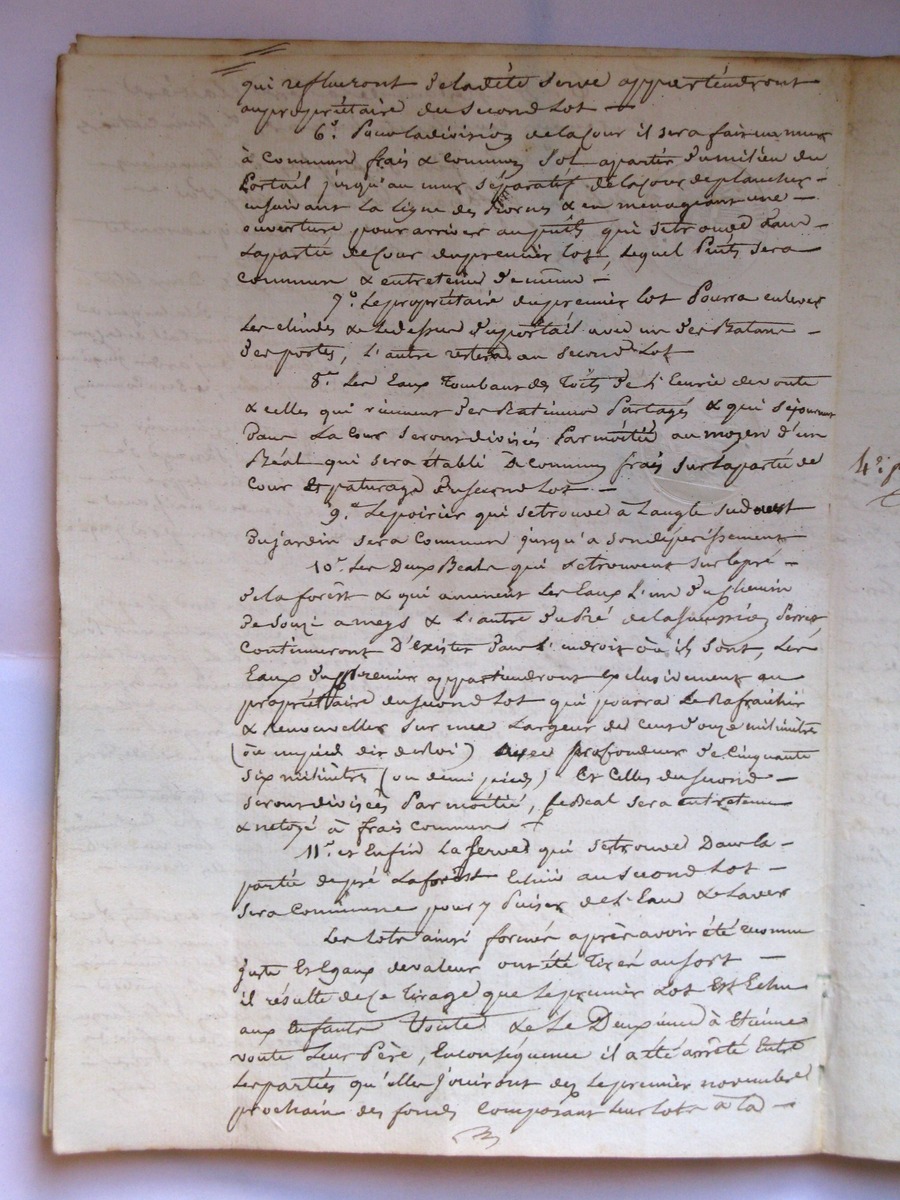 qui reflueront de ladéte serve appartiendront
au propriétaire du second Lot —
6°. Pour la division de la Cour il sera fait un mur
à Commun frais & commun Sol apartir du milieu du
Portail jusqu'au mur séparatif de la Cour de plancher —
en suivant la ligne des Bornes & en menageant une —
ouverture pour arriver au puits qui se trouve dans
la partie de Cour du premier lot, lequel Puits sera
commun & entretenu de même —
7°. Le propriétaire du premier lot Pourra enlever
Les & Le dessus du portail avec un des Batans —
des portes, L'autre restera au second Lot
8°. Les Eaux Tombant des Toits de l'Ecurie de voute
& celles qui viennent des Batimens Partagés & qui séjournent
Dans La Cour seront divisées Par moitié au moyen d'un
Béal qui sera établi à commun frais sur la partie de
Cour Et paturage du second Lot —
9°. Le poirier qui se trouve à Langle sud ouest
Du jardin sera Commun jusqu'a son dépérissement
10°. Les Deux Beals qui se trouvent sur le pré —
de la forêst & qui amenent Les Eaux L'un du chemin
de Souzi a meys & L'autre du Pré de la succession
Continueront D'Exister dans l'endroit où ils sont, Les
Eaux du premier appartiendront Exclusivement au
propriétaire du second Lot qui pourra Le Rafraichir
& Renouveller sur une Largeur de Cent Douze milimètres
(ou un pied dit de Roi) avec profondeur de Cinquante
six milimètres (ou demi pied) Et Celles du second —
seront divisées Par moitié, ce Béal sera entretenu
& netoyé à frais commun
11°. et Enfin La serve qui se trouve Dans la —
partie de pré Laforêst Echue au second Lot —
sera Commune pour y Puiser de l'Eau & Laver
Les lots ainsi formés après avoir été reconnu
juste Et Egaux de valeur ont été Tirés au sort —
il résulte de ce Tirage que Le premier Lot Est Echu
aux Enfants Voute & Le Deuxième à Etienne
voute Leur Père, En conséquence il a été arrêté Entre
Les parties qu'elles jouiront dès Le premier novembre
prochain des fonds Composant leur lots à la —
4°. p